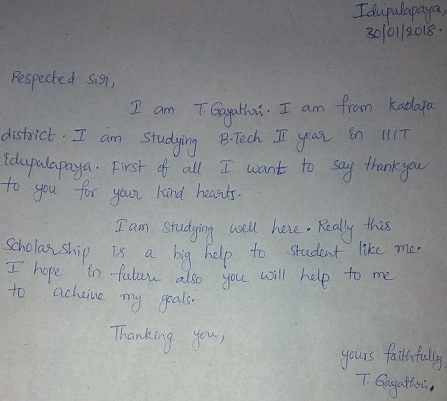 Idupulapaya,
30/01/2018.
Respected Sir,
I am T. Gayathri. I am from Kadapa
district. I am studying B.Tech II year in IIIT
Idupulapaya. First of all I want to say thankyou
to you for your kind hearts.
I am studying well here. Really this
Scholarship is a big help to student like me.
I hope in future also you will help to me
to acheive my goals.
Thanking you,
yours faithfully,
T. Gayathri.